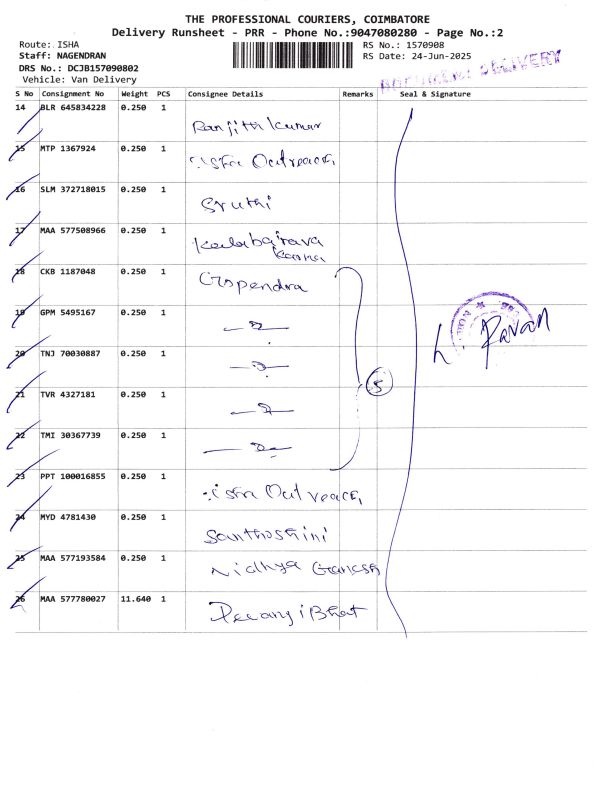 THE PROFESSIONAL COURIERS, COIMBATORE
Delivery Runsheet - PRR - Phone No.:9047080280 - Page No.:2
Route: ISHA
RS No.: 1570908
Staff: NAGENDRAN
RS Date: 24-Jun-2025
DRS No.: DCJB157090802
DELIVERY
Vehicle: Van Delivery
S No Consignment No Weight PCS Consignee Details Remarks Seal & Signature
14 BLR 645834228 0.250 1 Ranjith Kumar
15 MTP 1367924 0.250 1 isha Outreach
16 SLM 372718015 0.250 1 Sruthi
17 MAA 577508966 0.250 1 Kalabairava Karna
18 CKB 1187048 0.250 1 Gopendra
19 GPM 5495167 0.250 1
20 TNJ 70030887 0.250 1
5
21 TVR 4327181 0.250 1
22 TMI 30367739 0.250 1
23 PPT 100016855 0.250 1 isha Outreach
24 MYD 4781430 0.250 1 Santhoshini
25 MAA 577193584 0.250 1 Nidhya Ganesh
26 MAA 577780027 11.640 1 Devangi Bhat
L. Pavan